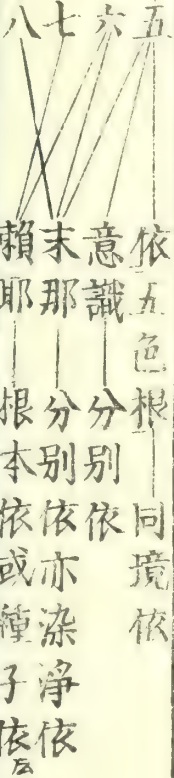 五 六 七 八
依五色根 同境依
意識 分別依
末那 分別依亦染淨依
賴耶 根本依或種子依